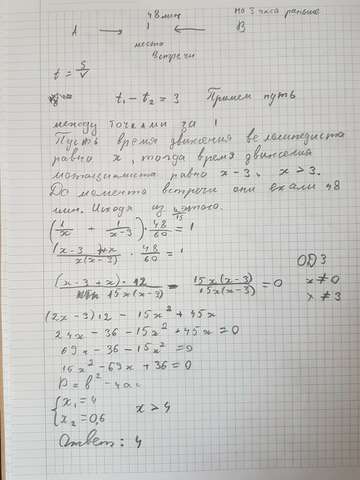 48 мин
на 3 часа раньше
A → 1 ← B
место
встречи
t = S/V
t₁ - t₂ = 3 Примем путь
между точками за 1
Пусть время движения велосипедиста
равна x, тогда время движения
мотоциклиста равна x-3, x > 3.
До момента встречи они ехали 48
мин. Исходя из этого.
(1/x + 1/(x-3)) · 48/60 = 1
(x-3+x)/(x(x-3)) · 48/60 = 1
ОДЗ
((x-3+x)·12)/(15x(x-3)) - (15x(x-3))/(15x(x-3)) = 0 x ≠ 0
x ≠ 3
(2x-3)12 - 15x² + 45x
24x - 36 - 15x² + 45x = 0
69x - 36 - 15x² = 0
15x² - 69x + 36 = 0
D = b² - 4ac
{ x₁ = 4
x₂ = 0,6 x > 4
Ответ: 4